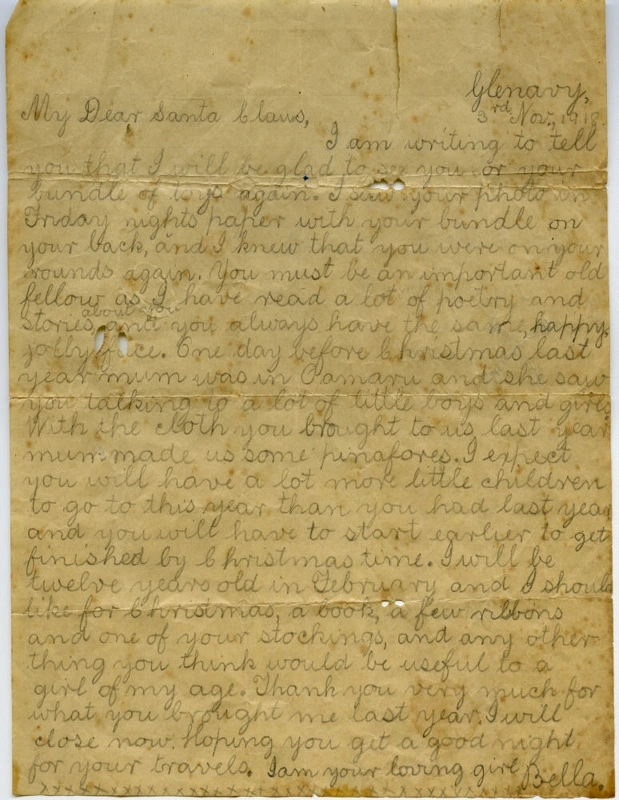 Glenavy,
3rd Nov., 1918
My Dear Santa Claus,
I am writing to tell
you that I will be glad to see you or your
bundle of toys again. I saw your photo in
Friday nights paper with your bundle on
your back, and I knew that you were on your
rounds again. You must be an important old
fellow as I have read a lot of poetry and
stories about you and you always have the same, happy,
jolly face. One day before Christmas last
year mum was in Oamaru and she saw
you talking to a lot of little boys and girls
With the cloth you brought to us last year
mum made us some pinafores. I expect
you will have a lot more little children
to go to this year than you had last year
and you will have to start earlier to get
finished by Christmas time. I will be
twelve years old in February and I should
like for Christmas, a book, a few ribbons
and one of your stockings, and any other
thing you think would be useful to a
girl of my age. Thank you very much for
what you brought me last year. I will
close now. Hoping you get a good night
for your travels. I am your loving girl Bella.
x x x x x x x x x x x x x x x x x x x x x x x x x x x x x x